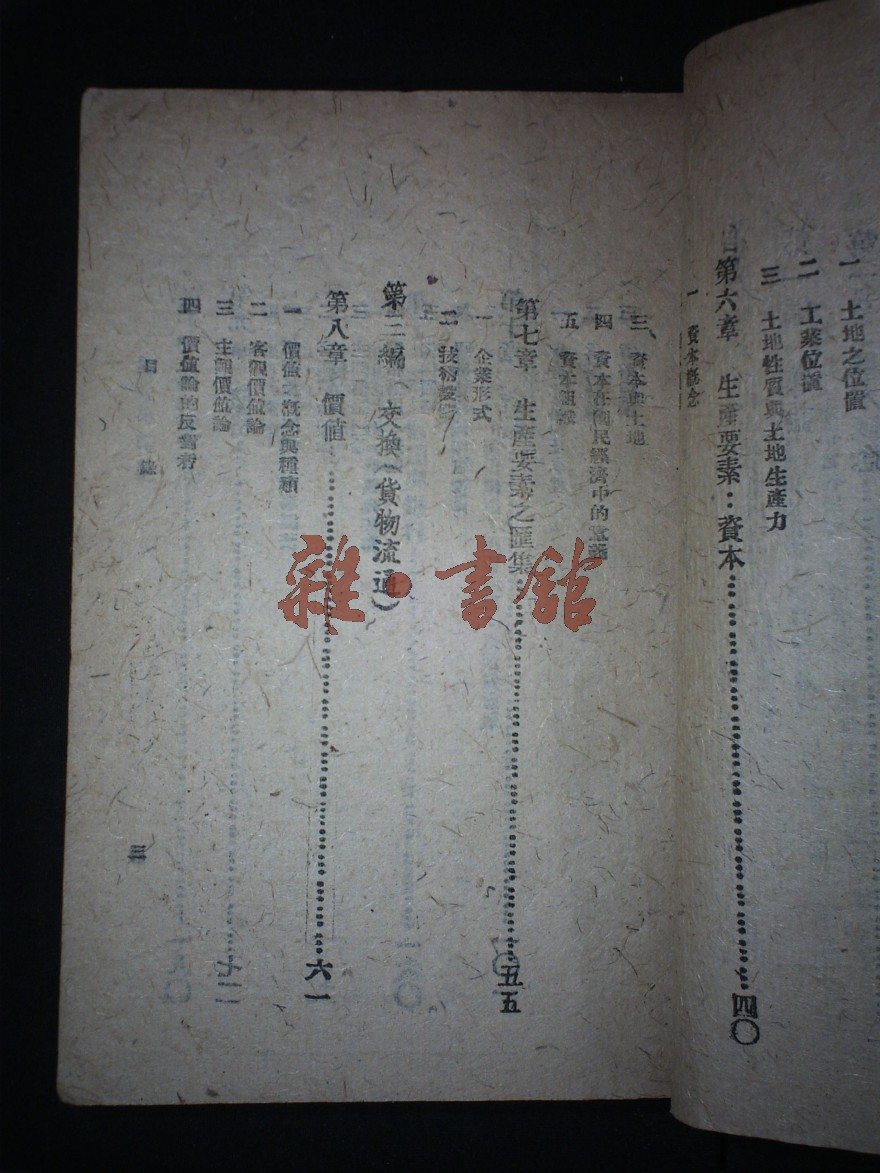 一 土地之位置
二 工業位置
三 土地性質與土地生產力
第六章 生產要素：資本……四〇
一 資本概念
三 資本與土地
四 資本在國民經濟中的
五 資本組織
第七章 生產要素之匯集……五五
一 企業形式
二 技術
第三編 交換（貨物流通）
第八章 價値……六一
一 價値之概念與種類
二 客觀價値論
三 主觀價値論
四 價値論的反對者
目 錄
三
雜·書館